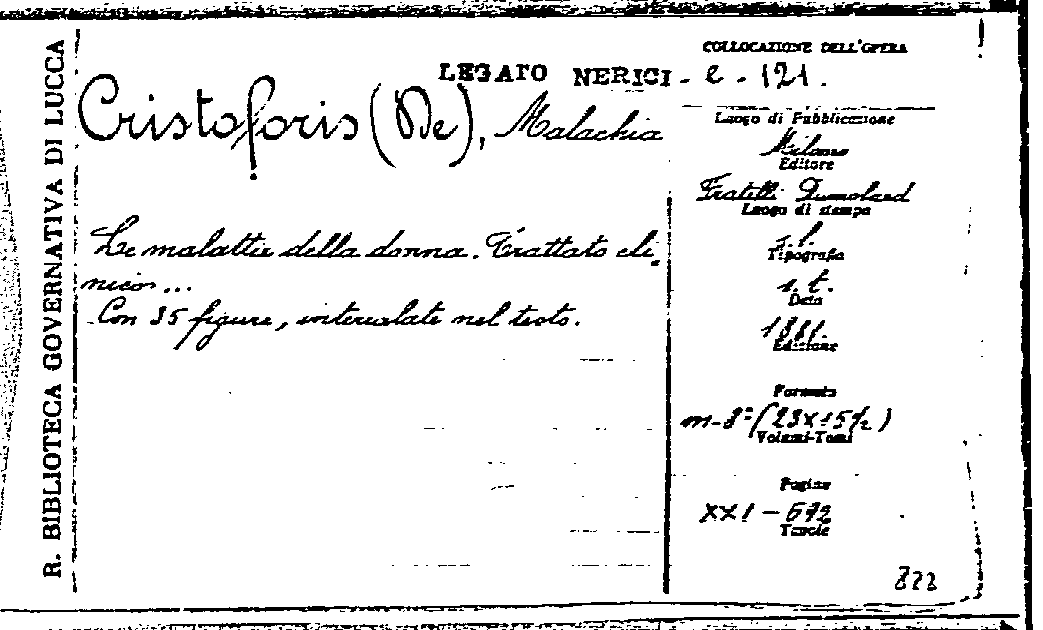 R. BIBLIOTECA GOVERNATIVA DI LUCCA
COLLOCAZIONE DELL'OPERA
LEGATO NERICI - e - 121.
Cristoforis (De), Malachia
Le malattie della donna. Trattato cli-
nico...
Con 35 figure, intercalate nel testo.
Luogo di Pubblicazione
Milano
Editore
Fratelli Dumolard
Luogo di stampa
s. l.
Tipografia
s. t.
Data
Edizione
Formato
in-8° (23x15½)
Volumi-Tomi
Pagine
XXI - 672
Tavole
822